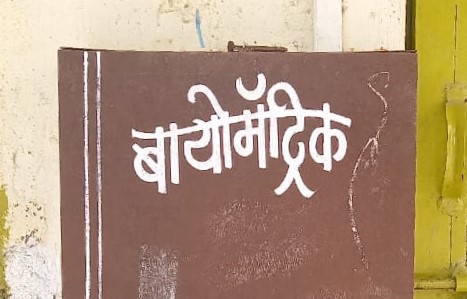 बायोमॅट्रिक